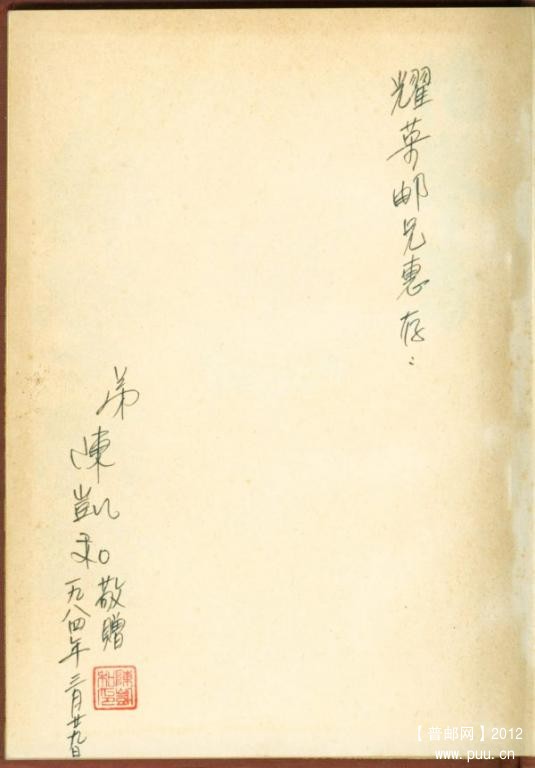 耀英邮兄惠存：
弟
陳凱和敬贈
一九八四年三月廿九日
陳凱和印
【普邮网】2012
www.puu.cn